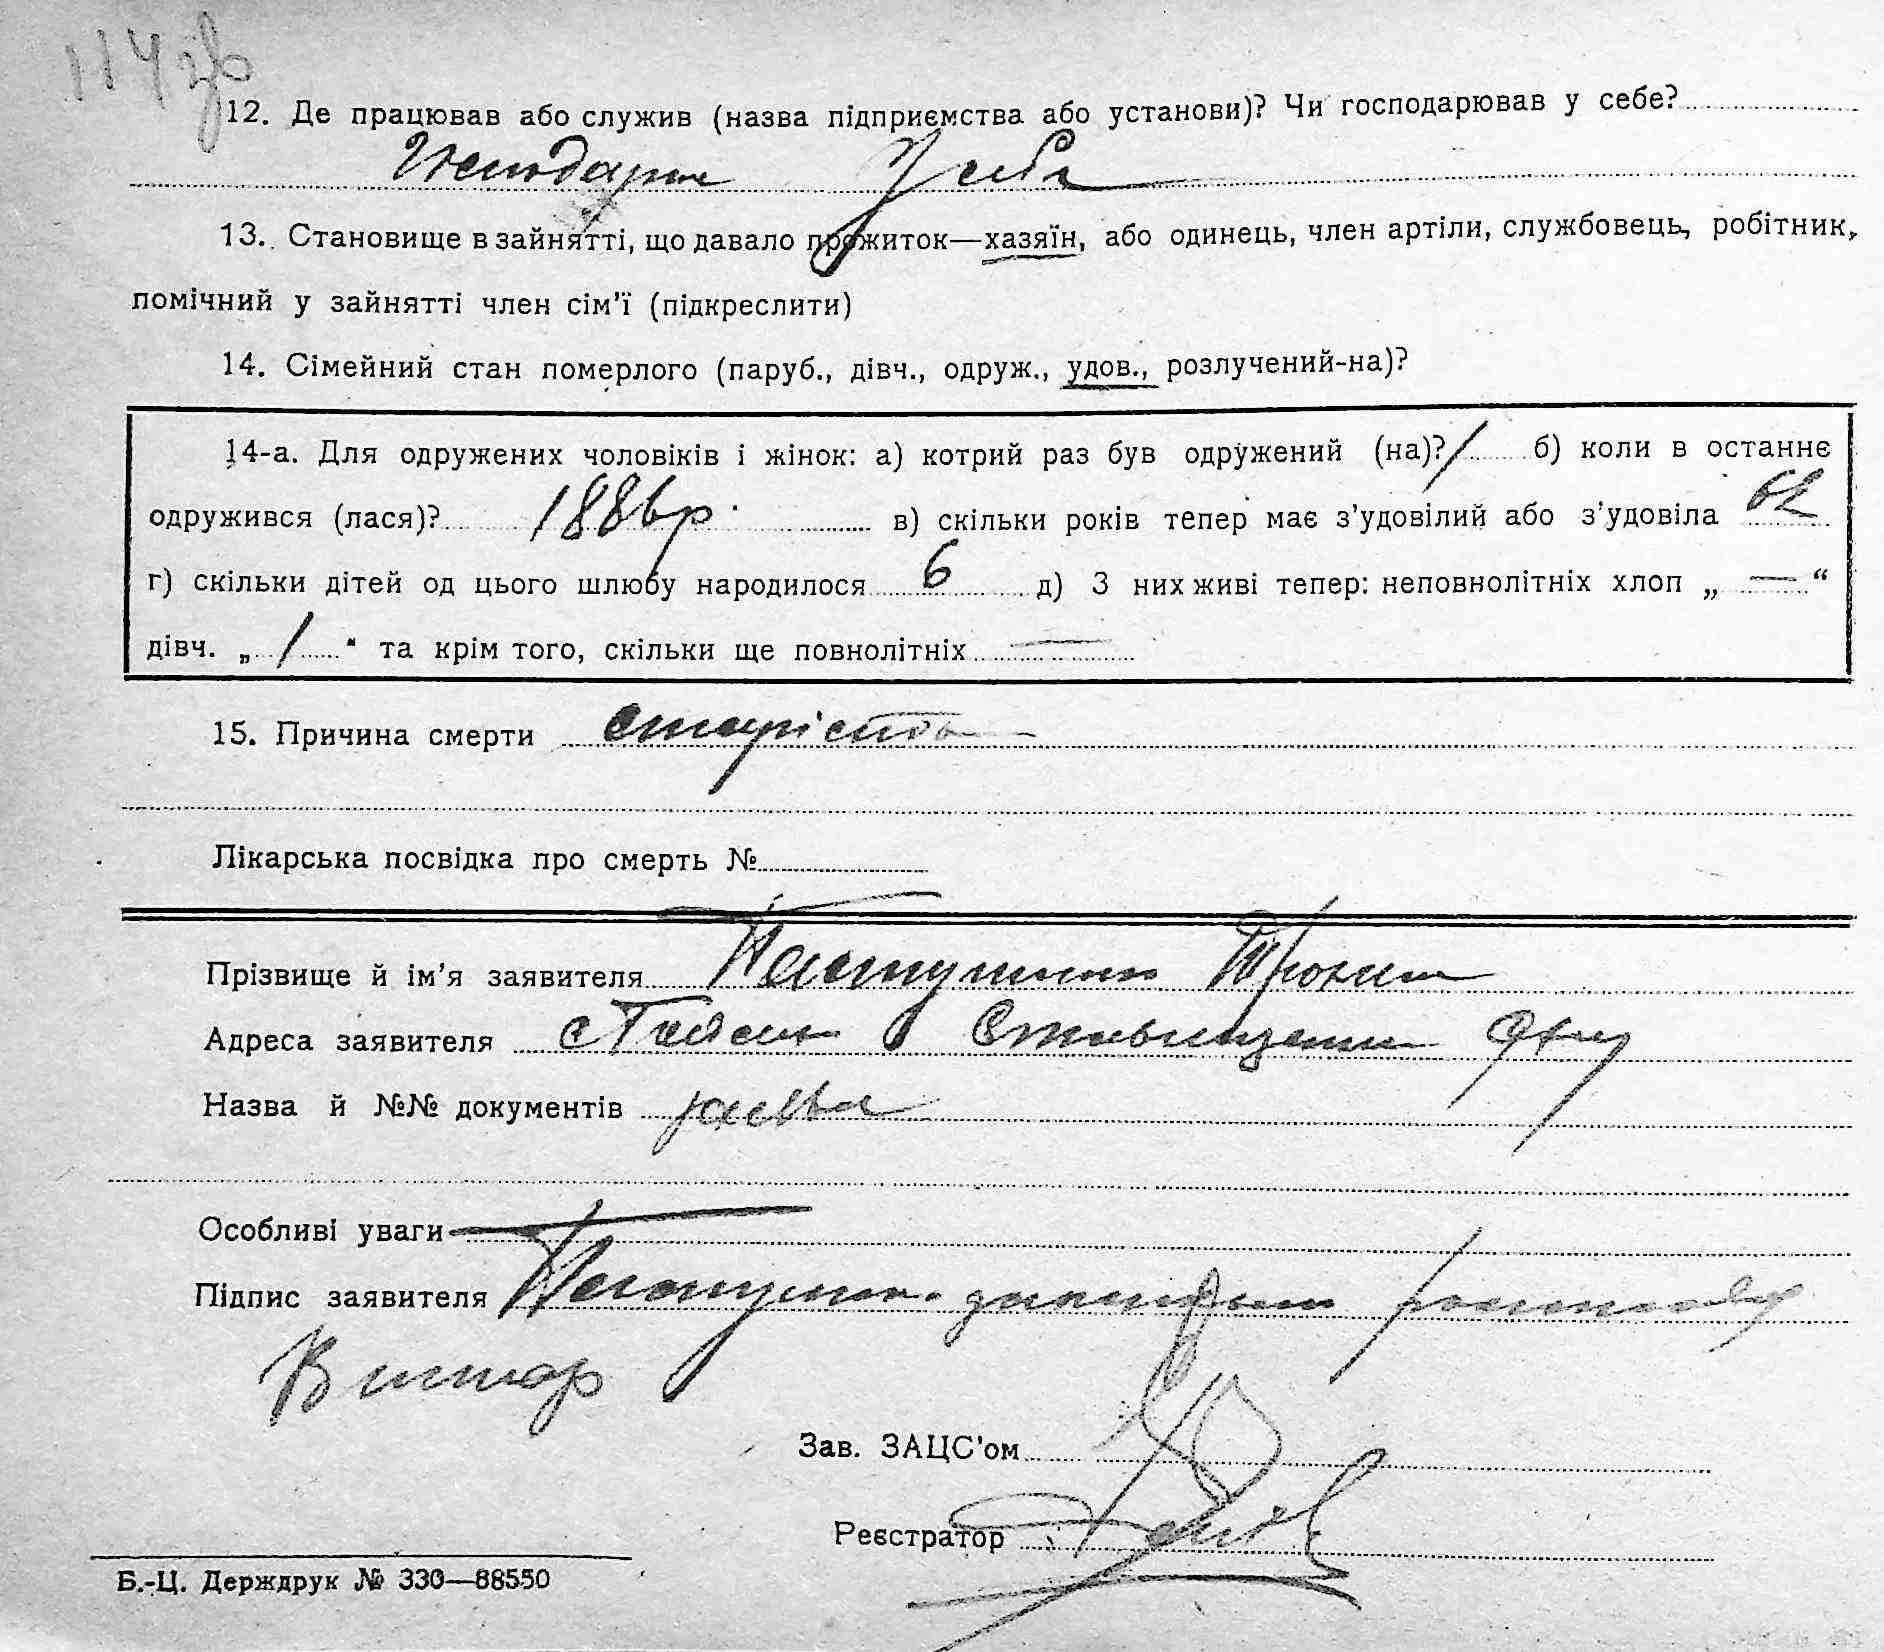 114 зв
12. Де працював або служив (назва підприємства або установи)? Чи господарював у себе?
Господарюв У себе
13. Становище в зайнятті, що давало прожиток—хазяїн, або одинець, член артіли, службовець, робітник,
помічний у зайнятті член сім'ї (підкреслити)
14. Сімейний стан померлого (паруб., дівч., одруж., удов., розлучений-на)?
14-а. Для одружених чоловіків і жінок: а) котрий раз був одружений (на)? 1 б) коли в останнє
одружився (лася)? 1886 р. в) скільки років тепер має з'удовілий або з'удовіла 62
г) скільки дітей од цього шлюбу народилося 6 д) З них живі тепер: неповнолітніх хлоп „ — “
дівч. „ 1 “ та крім того, скільки ще повнолітніх —
15. Причина смерти старість
Лікарська посвідка про смерть №
Прізвище й ім'я заявителя Пастушенко Трохим
Адреса заявителя с Ставищани
Назва й №№ документів
Особливі уваги —
Підпис заявителя Пастушенко
Зав. ЗАЦС'ом
Реєстратор
Б.-Ц. Держдрук № 330—88550